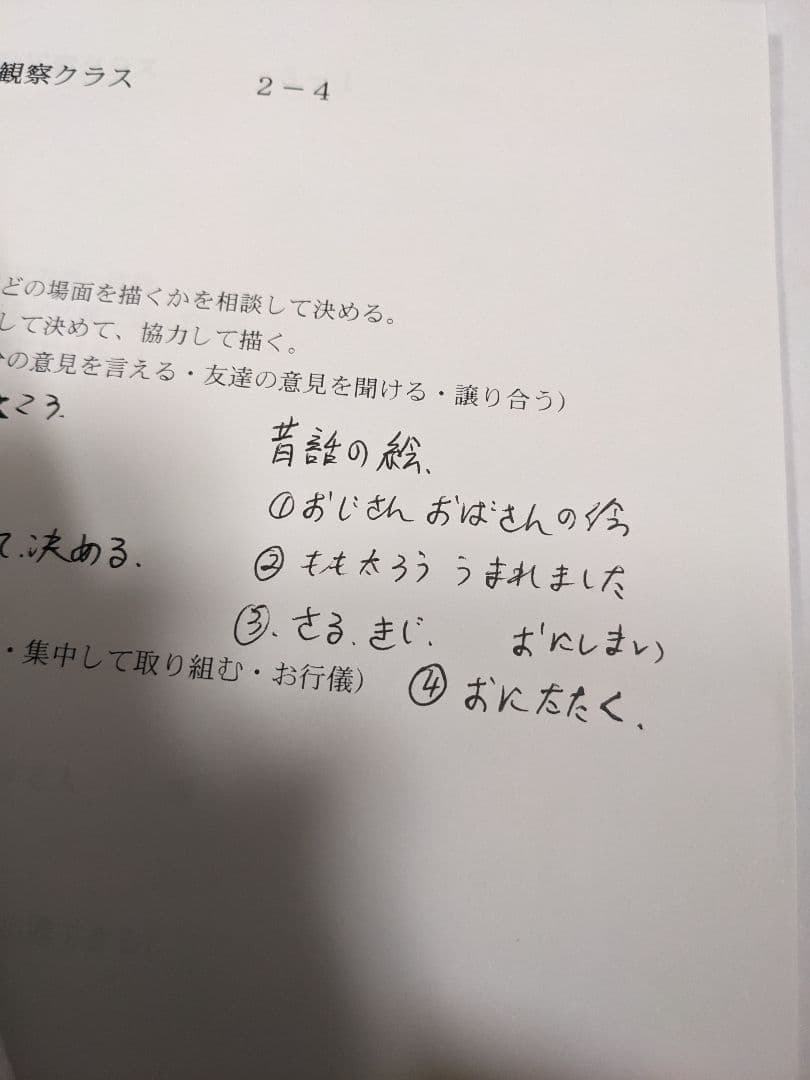 観察クラス 2－4
どの場面を描くかを相談して決める。
して決めて、協力して描く。
の意見を言える・友達の意見を聞ける・譲り合う）
ころ.
昔話の絵、
①おじさん おばさんの絵
て.決める.
②もも太ろう うまれました
③、さる、きじ、 おにしまい
・集中して取り組む・お行儀）
④おにたたく、